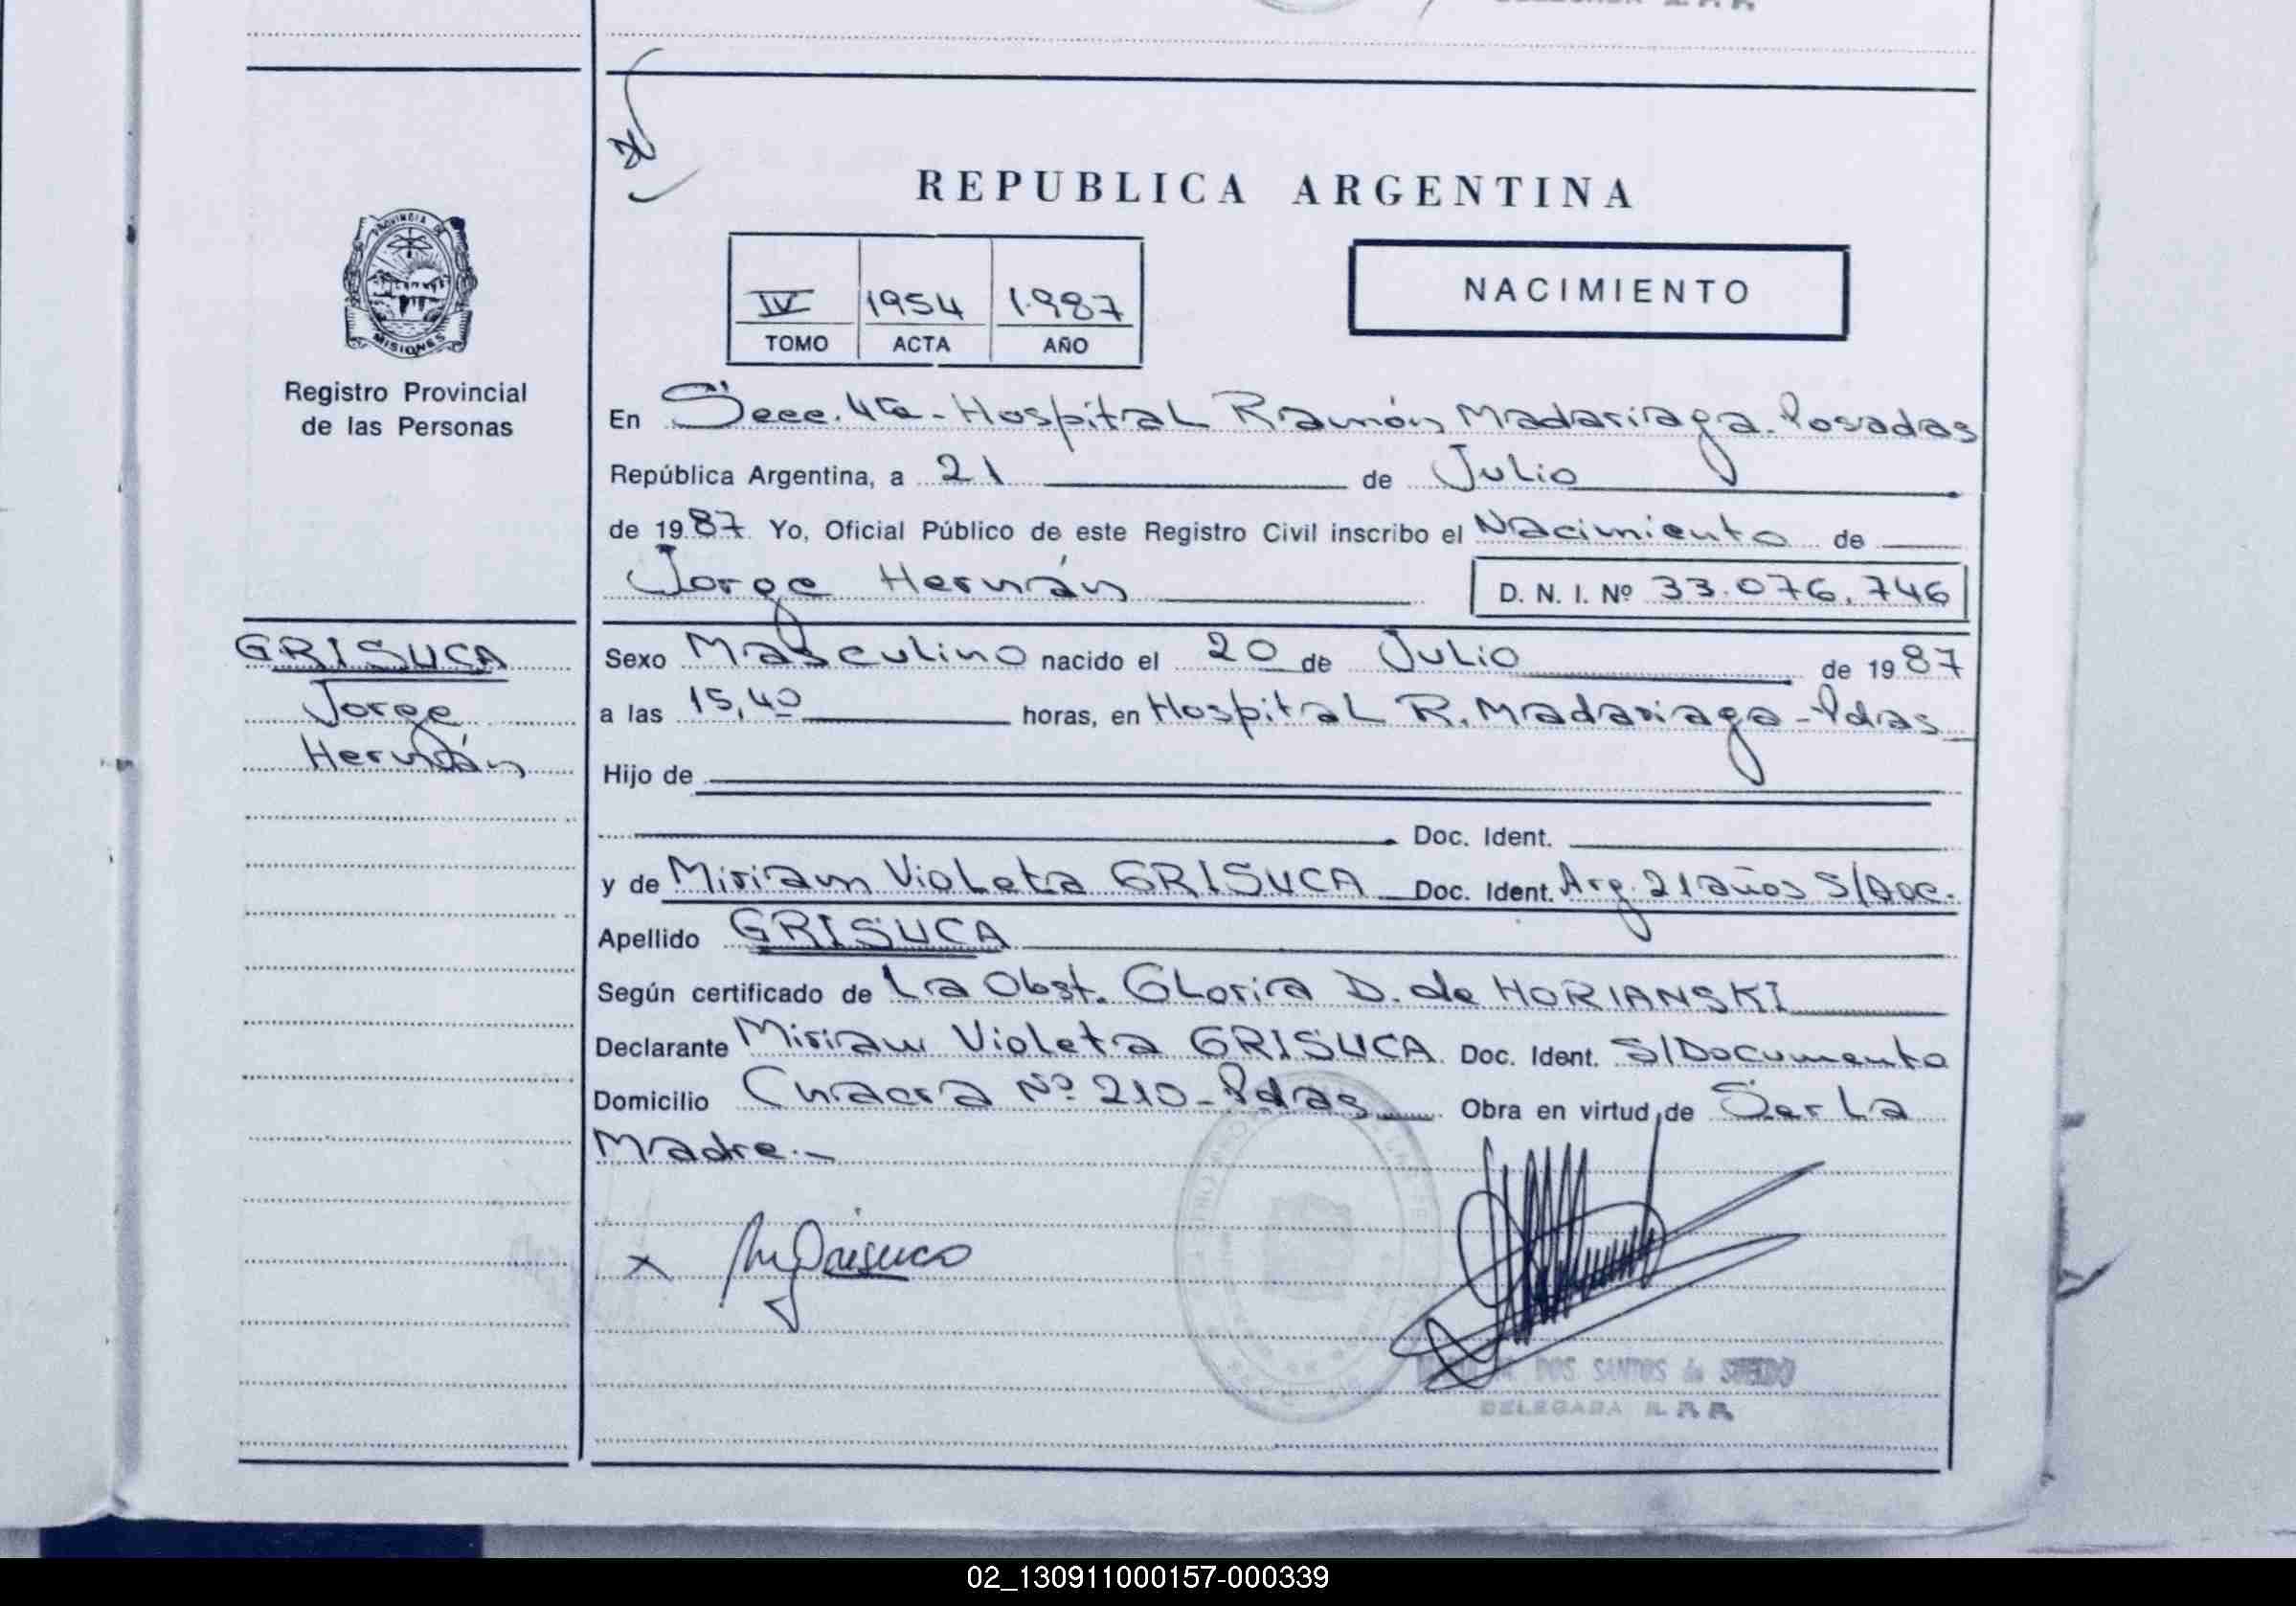 REPUBLICA ARGENTINA
IV 1954 1.987
TOMO ACTA AÑO
NACIMIENTO
PROVINCIA DE
MISIONES
Registro Provincial
de las Personas
En Secc. 4ta - Hospital Ramón Madariaga. Posadas
República Argentina, a 21 de Julio
de 1987 Yo, Oficial Público de este Registro Civil inscribo el Nacimiento de
Jorge Hernán D. N. I. Nº 33.076.746
GRISUCA
Jorge
Hernán
Sexo Masculino nacido el 20 de Julio de 1987
a las 15,40 horas, en Hospital R. Madariaga - Pdas
Hijo de
Doc. Ident.
y de Miriam Violeta GRISUCA Doc. Ident. Arg. 21 años S/Doc.
Apellido GRISUCA
Según certificado de La Obst. Gloria D. de HORIANSKI
Declarante Miriam Violeta GRISUCA Doc. Ident. S/Documento
Domicilio Chacra Nº 210 - Pdas Obra en virtud de Ser La
Madre.-
x
DOS SANTOS de
DELEGADA R. P. P.
02_130911000157-000339